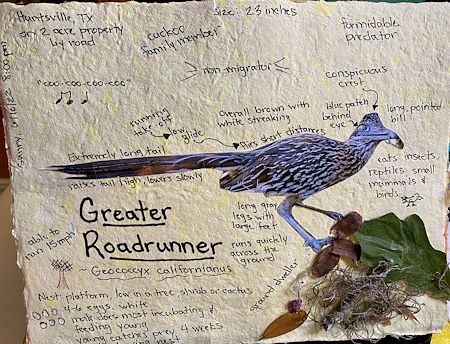 Huntsville, TX
our 2 acre property
by road
Size: 23 inches
cuckoo
family member
formidable
predator
Sunny 8:00 pm
"coo-coo-coo-coo"
non-migrator
conspicuous
crest
running
take off
low
glide
overall brown with
white streaking
flies short distances
blue patch
behind
eye
long, pointed
bill
Extremely long tail
raises tail high, lowers slowly
eats insects,
reptiles, small
mammals &
birds
Greater
Roadrunner
~ Geococcyx californianus
able to
run 15 mph
long gray
legs with
large feet
runs quickly
across the
ground
ground dweller
Nest: platform, low in a tree, shrub or cactus
4-6 eggs, white
male does most incubating &
feeding young
young catches prey 4 weeks
nest